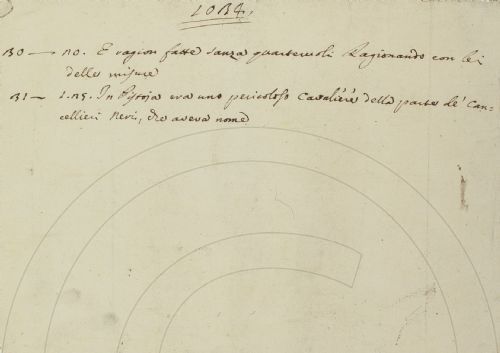 1084.
80 — 20. E ragion fatte sanza quartervoli Ragionando con lei
delle misure
81 — 1.25. In Pistoja era uno pericoloso Cavaliere della parte de' Can-
cellieri Neri, che aveva nome